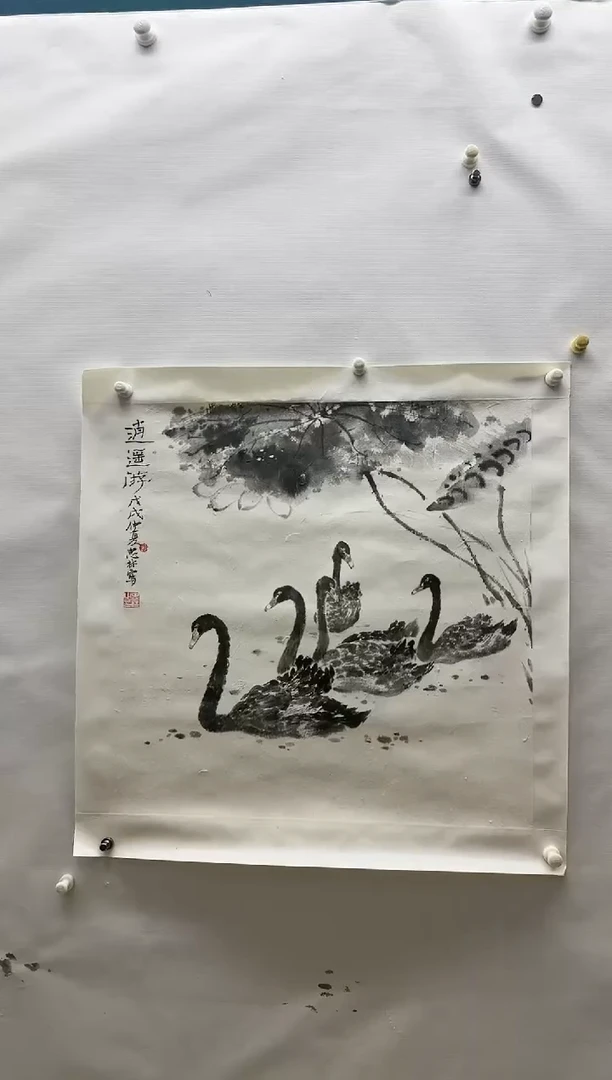 逍遥游 戊戌仲夏 志林写